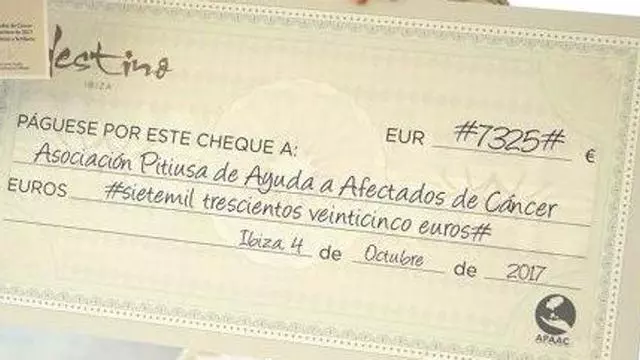 Destino
IBIZA
EUR #7325# €
PÁGUESE POR ESTE CHEQUE A:
Asociación Pitiusa de Ayuda a Afectados de Cáncer
EUROS #sietemil trescientos veinticinco euros#
Ibiza 4 de Octubre de 2017
APAAC